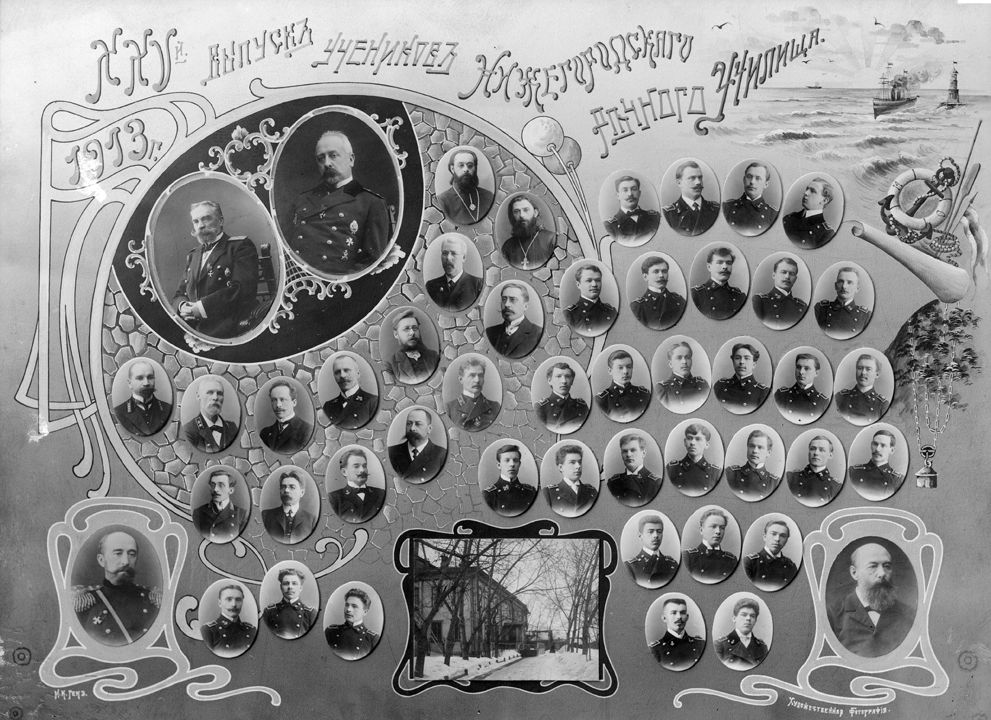 XXVй ВЫПУСКЪ УЧЕНИКОВЪ НИЖЕГОРОДСКАГО
РѢЧНОГО УЧИЛИЩА.
1913 г.
Художественная Фотографія.